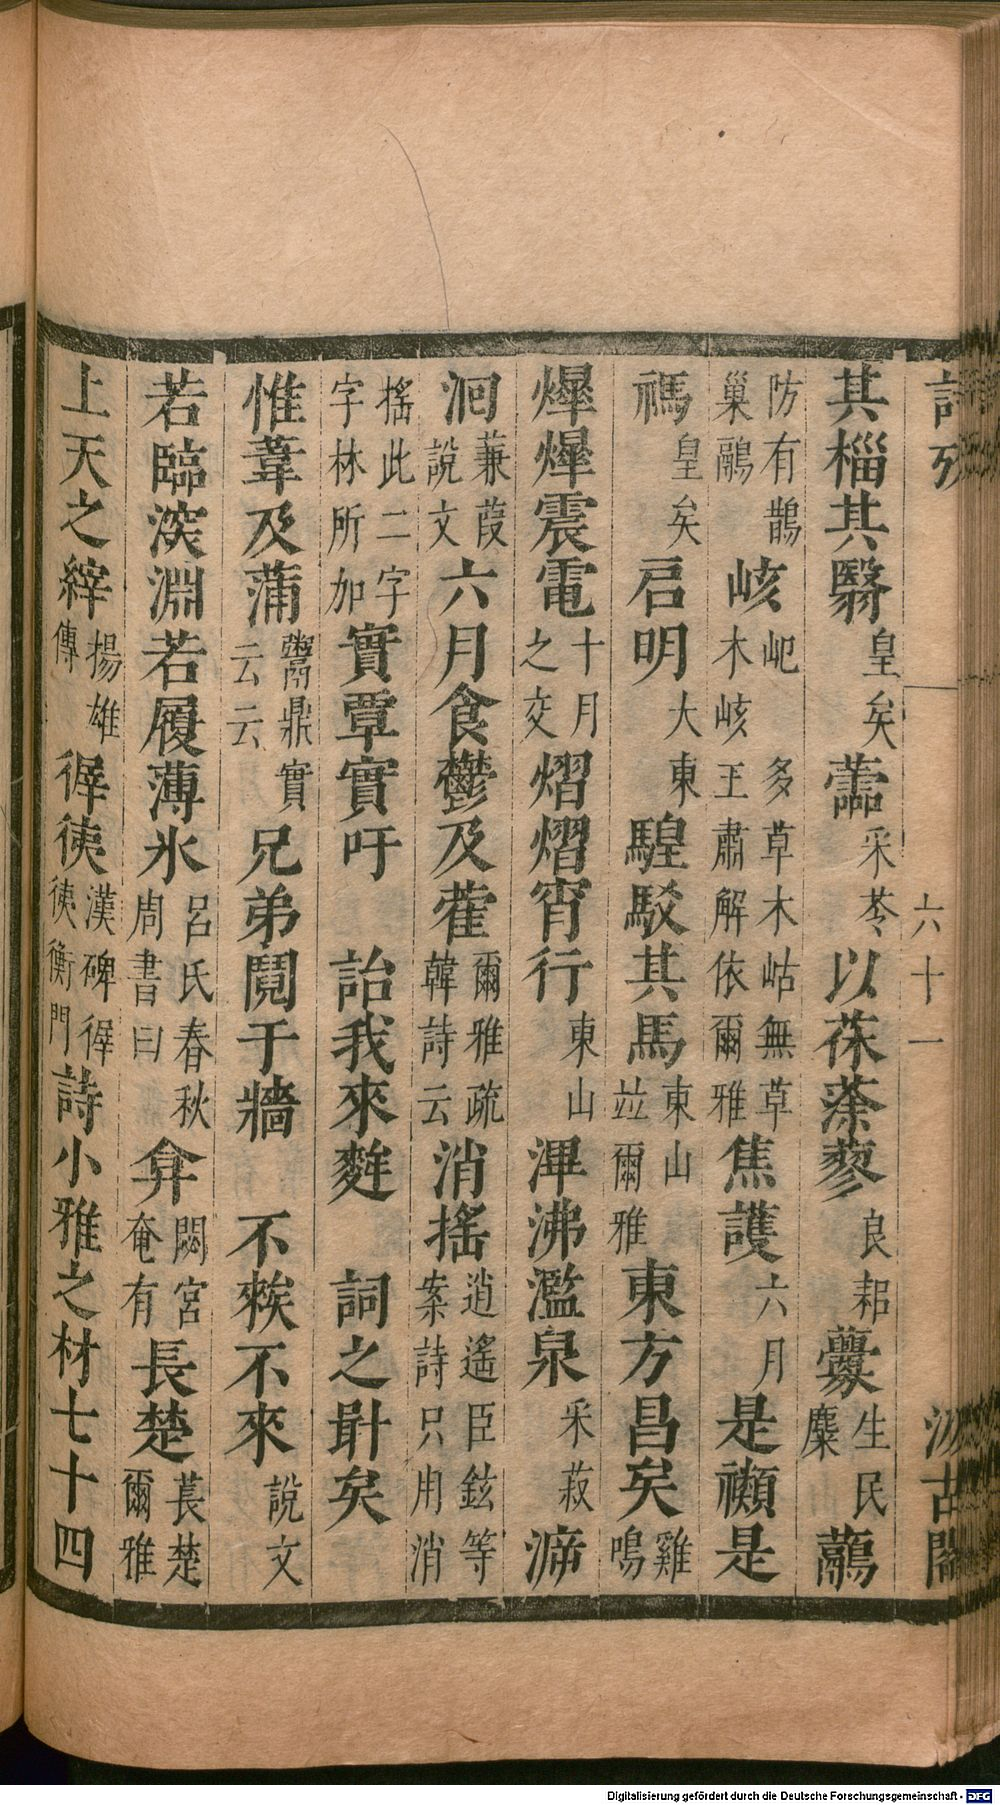 其椔其翳皇矣 藷采苓以茠蒤蓼良耜 䴢生民 虋 鷊
防有鵲巢鷊 峐屺 木峐 多草木岵無草 王肅解依爾雅 焦護六月 是禷是
禡皇矣 㠯明大東 騜駁其馬東山 竝爾雅 東方昌矣雞鳴
燡燡震電十月之交 熠熠宵行東山 滭沸濫泉采菽 㴑
洄蒹葭 說文 六月食鬱及藿爾雅疏 韓詩云 消搖逍遙臣鉉等案詩只用消
搖此二字字林所加 實覃實吁 詒我來麰 詞之㖸矣
惟葦及蒲鬻鼎實云云 兄弟鬩于牆 不𥏳不來說文
若臨深淵若履薄氷呂氏春秋 周書曰 弇閟宮奄有 長楚萇楚 爾雅
上天之縡揚雄傳 徲徥漢碑徲徥衡門 詩小雅之材七十四
六十一
汲古閣
Digitalisierung gefördert durch die Deutsche Forschungsgemeinschaft - DFG